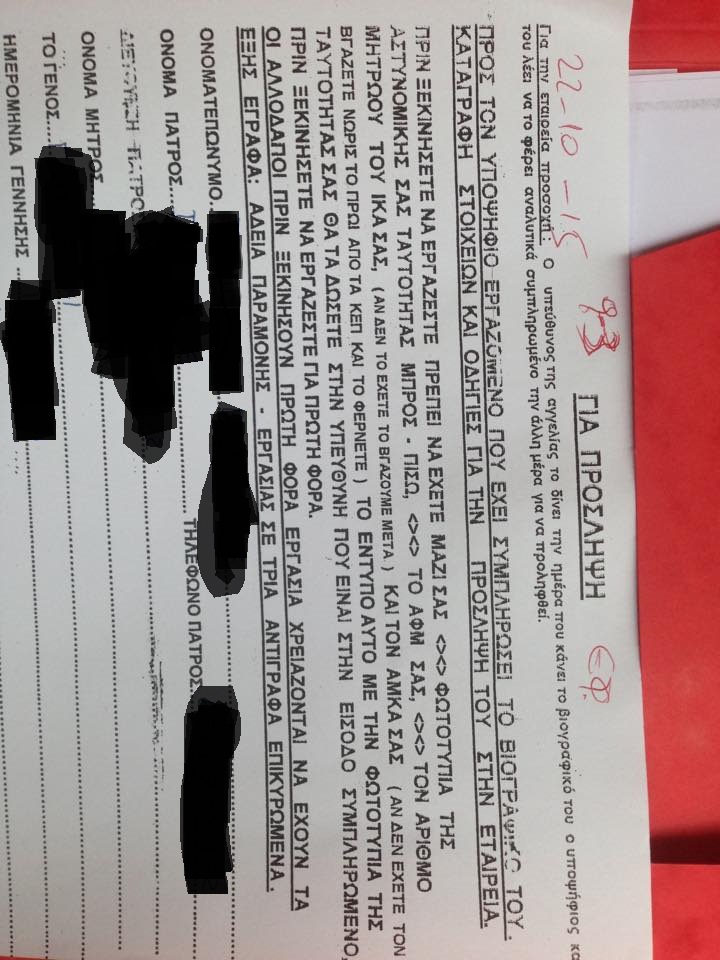 22-10-15 9-3 ΕΦ.
ΓΙΑ ΠΡΟΣΛΗΨΗ
Για την εταιρεία προσοχή: Ο υπεύθυνος της αγγελίας το δίνει την ημέρα που κάνει το βιογραφικό του ο υποψήφιος κα
του λέει να το φέρει αναλυτικά συμπληρωμένο την άλλη μέρα για να προληφθεί.
ΠΡΟΣ ΤΟΝ ΥΠΟΨΗΦΙΟ ΕΡΓΑΖΟΜΕΝΟ ΠΟΥ ΕΧΕΙ ΣΥΜΠΛΗΡΩΣΕΙ ΤΟ ΒΙΟΓΡΑΦΙΚΟ ΤΟΥ.
ΚΑΤΑΓΡΑΦΗ ΣΤΟΙΧΕΙΩΝ ΚΑΙ ΟΔΗΓΙΕΣ ΓΙΑ ΤΗΝ ΠΡΟΣΛΗΨΗ ΤΟΥ ΣΤΗΝ ΕΤΑΙΡΕΙΑ.
ΠΡΙΝ ΞΕΚΙΝΗΣΕΤΕ ΝΑ ΕΡΓΑΖΕΣΤΕ ΠΡΕΠΕΙ ΝΑ ΕΧΕΤΕ ΜΑΖΙ ΣΑΣ <><> ΦΩΤΟΤΥΠΙΑ ΤΗΣ
ΑΣΤΥΝΟΜΙΚΗΣ ΣΑΣ ΤΑΥΤΟΤΗΤΑΣ ΜΠΡΟΣ - ΠΙΣΩ, <><> ΤΟ ΑΦΜ ΣΑΣ, <><> ΤΟΝ ΑΡΙΘΜΟ
ΜΗΤΡΩΟΥ ΤΟΥ ΙΚΑ ΣΑΣ, (ΑΝ ΔΕΝ ΤΟ ΕΧΕΤΕ ΤΟ ΒΓΑΖΟΥΜΕ ΜΕΤΑ.) ΚΑΙ ΤΟΝ ΑΜΚΑ ΣΑΣ (ΑΝ ΔΕΝ ΕΧΕΤΕ ΤΟΝ
ΒΓΑΖΕΤΕ ΝΩΡΙΣ ΤΟ ΠΡΩΙ ΑΠΟ ΤΑ ΚΕΠ ΚΑΙ ΤΟ ΦΕΡΝΕΤΕ) ΤΟ ΕΝΤΥΠΟ ΑΥΤΟ ΜΕ ΤΗΝ ΦΩΤΟΤΥΠΙΑ ΤΗΣ
ΤΑΥΤΟΤΗΤΑΣ ΣΑΣ ΘΑ ΤΑ ΔΩΣΕΤΕ ΣΤΗΝ ΥΠΕΥΘΥΝΗ ΠΟΥ ΕΙΝΑΙ ΣΤΗΝ ΕΙΣΟΔΟ ΣΥΜΠΛΗΡΩΜΕΝΟ,
ΠΡΙΝ ΞΕΚΙΝΗΣΕΤΕ ΝΑ ΕΡΓΑΖΕΣΤΕ ΓΙΑ ΠΡΩΤΗ ΦΟΡΑ.
ΟΙ ΑΛΛΟΔΑΠΟΙ ΠΡΙΝ ΞΕΚΙΝΗΣΟΥΝ ΠΡΩΤΗ ΦΟΡΑ ΕΡΓΑΣΙΑ ΧΡΕΙΑΖΟΝΤΑΙ ΝΑ ΕΧΟΥΝ ΤΑ
ΕΞΗΣ ΕΓΡΑΦΑ: ΑΔΕΙΑ ΠΑΡΑΜΟΝΗΣ - ΕΡΓΑΣΙΑΣ ΣΕ ΤΡΙΑ ΑΝΤΙΓΡΑΦΑ ΕΠΙΚΥΡΩΜΕΝΑ.
ΟΝΟΜΑΤΕΠΩΝΥΜΟ...
ΟΝΟΜΑ ΠΑΤΡΟΣ... ΤΗΛΕΦΩΝΟ ΠΑΤΡΟΣ
ΟΝΟΜΑ ΜΗΤΡΟΣ...
ΤΟ ΓΕΝΟΣ...
ΗΜΕΡΟΜΗΝΙΑ ΓΕΝΝΗΣΗΣ ...